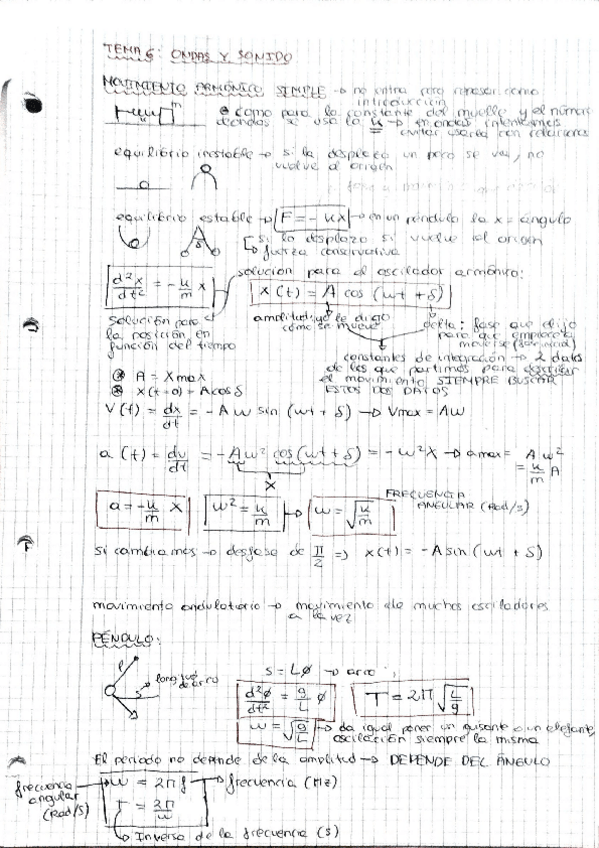 TEMA 6: ONDAS Y SONIDO
MOVIMIENTO ARMÓNICO SIMPLE → no entra pero repasar como
introducción
m
como para la constante del muelle y el número
de ondas se usa la k → en ondas intentaremos
evitar usarla con relaciones
equilibrio inestable → si la desplazo un poco se va, no
vuelve al origen
equilibrio estable → F = - kx → en un péndulo la x = ángulo
si lo desplazo si vuelve al origen
fuerza conservativa
solución para el oscilador armónico:
d²x/dt² = - k/m x
x(t) = A cos (wt + δ)
solución para
la posición en
función del tiempo
amplitud: yo le digo
cómo se mueve
delta: fase que elijo
para que empiece a
moverse
constantes de integración → 2 datos
de los que partimos para describir
el movimiento SIEMPRE BUSCAR
ESTOS DOS DATOS
A = Xmax
x(t=0) = A cos δ
V(t) = dx/dt = - A w sin (wt + δ) → Vmax = Aw
a(t) = dv/dt = - Aw² cos(wt + δ) = - w²X → amax = A w²
= k/m A
x
a = - k/m x
w² = k/m → w = √k/m
FRECUENCIA
ANGULAR (Rad/s)
si cambiamos → desfase de π/2 => x(t) = -A sin (wt + δ)
movimiento ondulatorio → movimiento de muchos osciladores
a la vez
PÉNDULO:
longitud
de arco
s
s = Lφ → arco
d²φ/dt² = g/L φ
T = 2π √L/g
w = √g/L → da igual poner un guisante o un elefante,
oscilación siempre la misma
El período no depende de la amplitud → DEPENDE DEL ÁNGULO
frecuencia
angular
(Rad/s)
w = 2πf → frecuencia (Hz)
T = 2π/w
Inverso de la frecuencia (s)